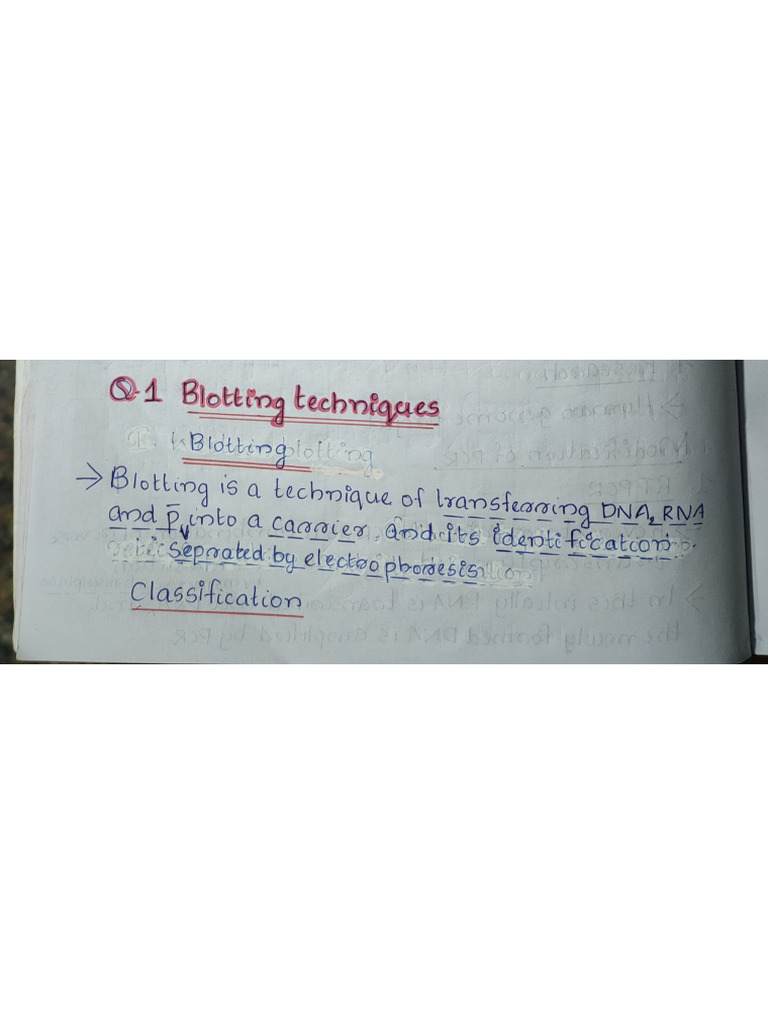 Q.1 Blotting techniques
Blotting
→ Blotting is a technique of transferring DNA, RNA
and p̄ into a carrier, and its identification.
seprated by electrophoresis
Classification